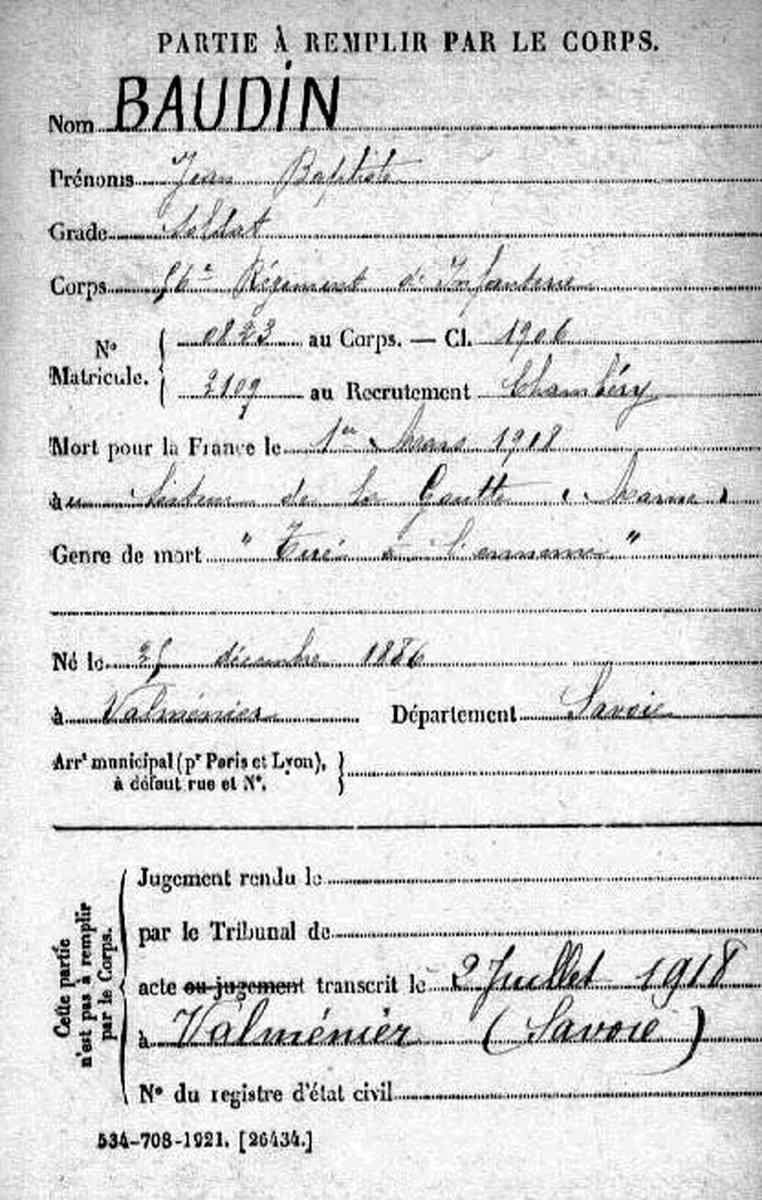 PARTIE À REMPLIR PAR LE CORPS.
Nom BAUDIN
Prénoms Jean Baptiste
Grade Soldat
Corps 56e Régiment d'Infanterie
N° Matricule. 0823 au Corps. — Cl. 1906
2109 au Recrutement Chambéry
Mort pour la France le 1er Mars 1918
au Secteur de la Goutte (Marne)
Genre de mort "Tué à l'ennemi"
Né le 25 décembre 1886
à Valménier Département Savoie
Arrt municipal (pr Paris et Lyon),
à défaut rue et N°.
Cette partie
n'est pas à remplir
par le Corps.
Jugement rendu le
par le Tribunal de
acte ou jugement transcrit le 2 Juillet 1918
à Valménier (Savoie)
N° du registre d'état civil
534-708-1921. [26434.]